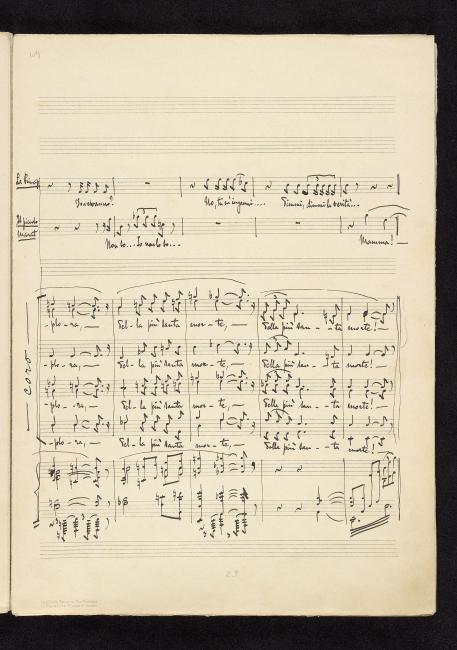 La Princ
No, tu m'inganni.... Dimmi, dimmi la verità...
Il piccolo
Marat
Non so... Io non lo so...
Mamma!
coro
-plo-ra, Del-la più santa mor-te, Della più san-ta morte!
-plo-ra, Del-la più santa mor-te, Della più san-ta morte!
-plo-ra, Del-la più santa mor-te, Della più san-ta morte!
-plo-ra, Del-la più santa mor-te, Della più san-ta morte!
23